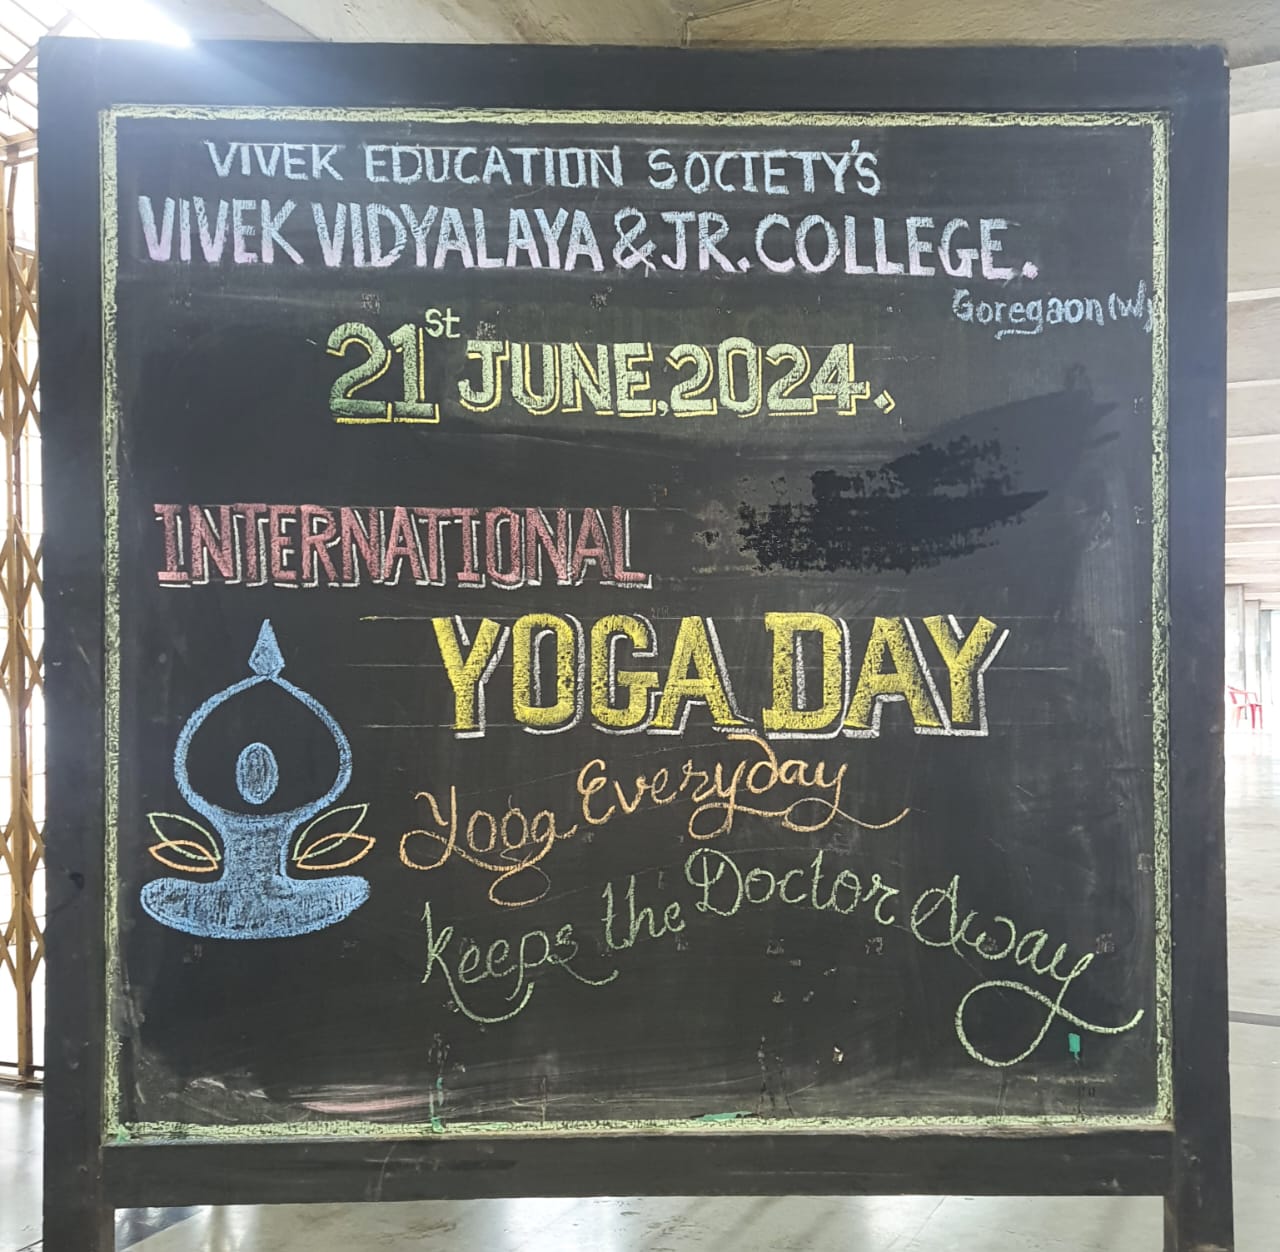 VIVEK EDUCATION SOCIETY'S
VIVEK VIDYALAYA & JR. COLLEGE.
Goregaon (W)
21st JUNE, 2024.
INTERNATIONAL
YOGA DAY
Yoga Everyday
keeps the Doctor Away